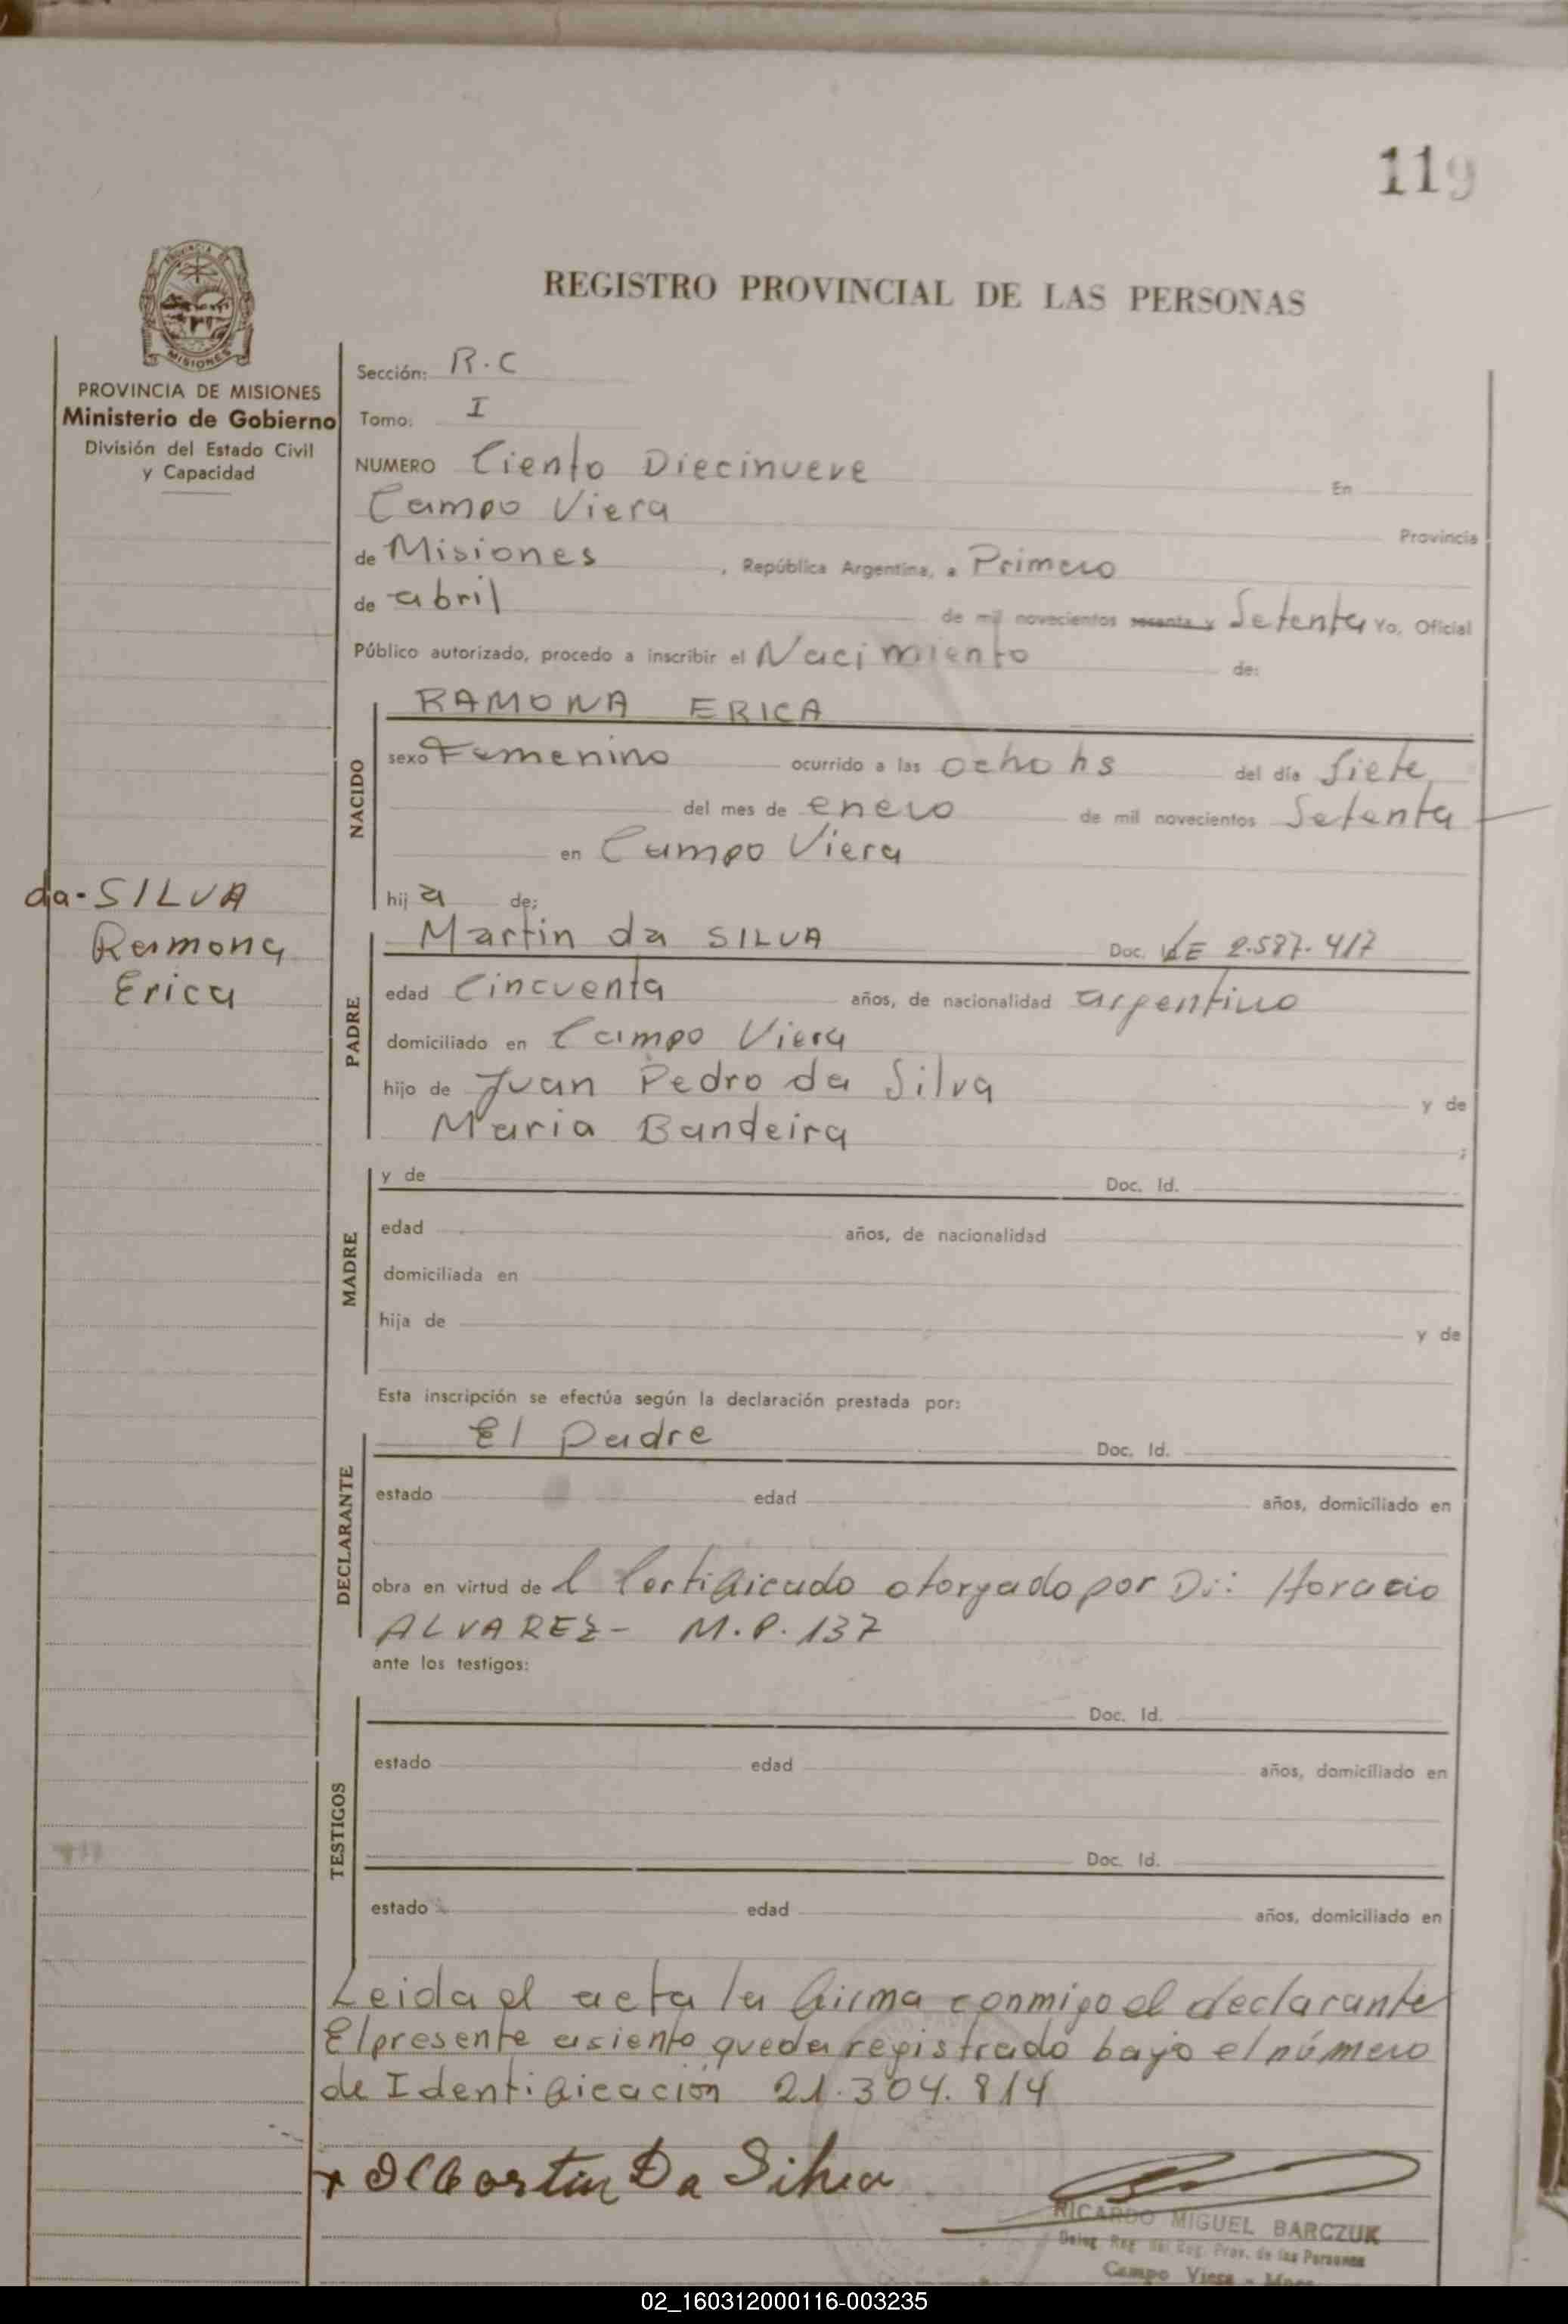 119
REGISTRO PROVINCIAL DE LAS PERSONAS
PROVINCIA DE
MISIONES
PROVINCIA DE MISIONES
Ministerio de Gobierno
División del Estado Civil
y Capacidad
Sección: R.C
Tomo: I
NUMERO Ciento Diecinueve En
Campo Viera Provincia
de Misiones , República Argentina, a Primero
de abril de mil novecientos sesenta y Setenta Yo, Oficial
Público autorizado, procedo a inscribir el Nacimiento de:
RAMONA ERICA
NACIDO
sexo Femenino ocurrido a las ocho hs del día Siete
del mes de enero de mil novecientos Setenta
en Campo Viera
hija de:
da-SILVA
Ramona
Erica
PADRE
Martin da SILVA Doc. LE 2.587.417
edad Cincuenta años, de nacionalidad argentino
domiciliado en Campo Viera
hijo de Juan Pedro da Silva y de
Maria Bandeira ;
MADRE
y de Doc. Id.
edad años, de nacionalidad
domiciliada en
hija de y de
Esta inscripción se efectúa según la declaración prestada por:
DECLARANTE
El Padre Doc. Id.
estado edad años, domiciliado en
obra en virtud de l Certificado otorgado por Dr: Horacio
ALVAREZ- M.P. 137
ante los testigos:
TESTIGOS
Doc. Id.
estado edad años, domiciliado en
Doc. Id.
estado edad años, domiciliado en
Leida el acta la firma conmigo el declarante
El presente asiento queda registrado bajo el número
de Identificación 21.304.814
Martin Da Silva
RICARDO MIGUEL BARCZUK
Deleg. Reg. del Reg. Prov. de las Personas
Campo Viera - Mnes
02_160312000116-003235